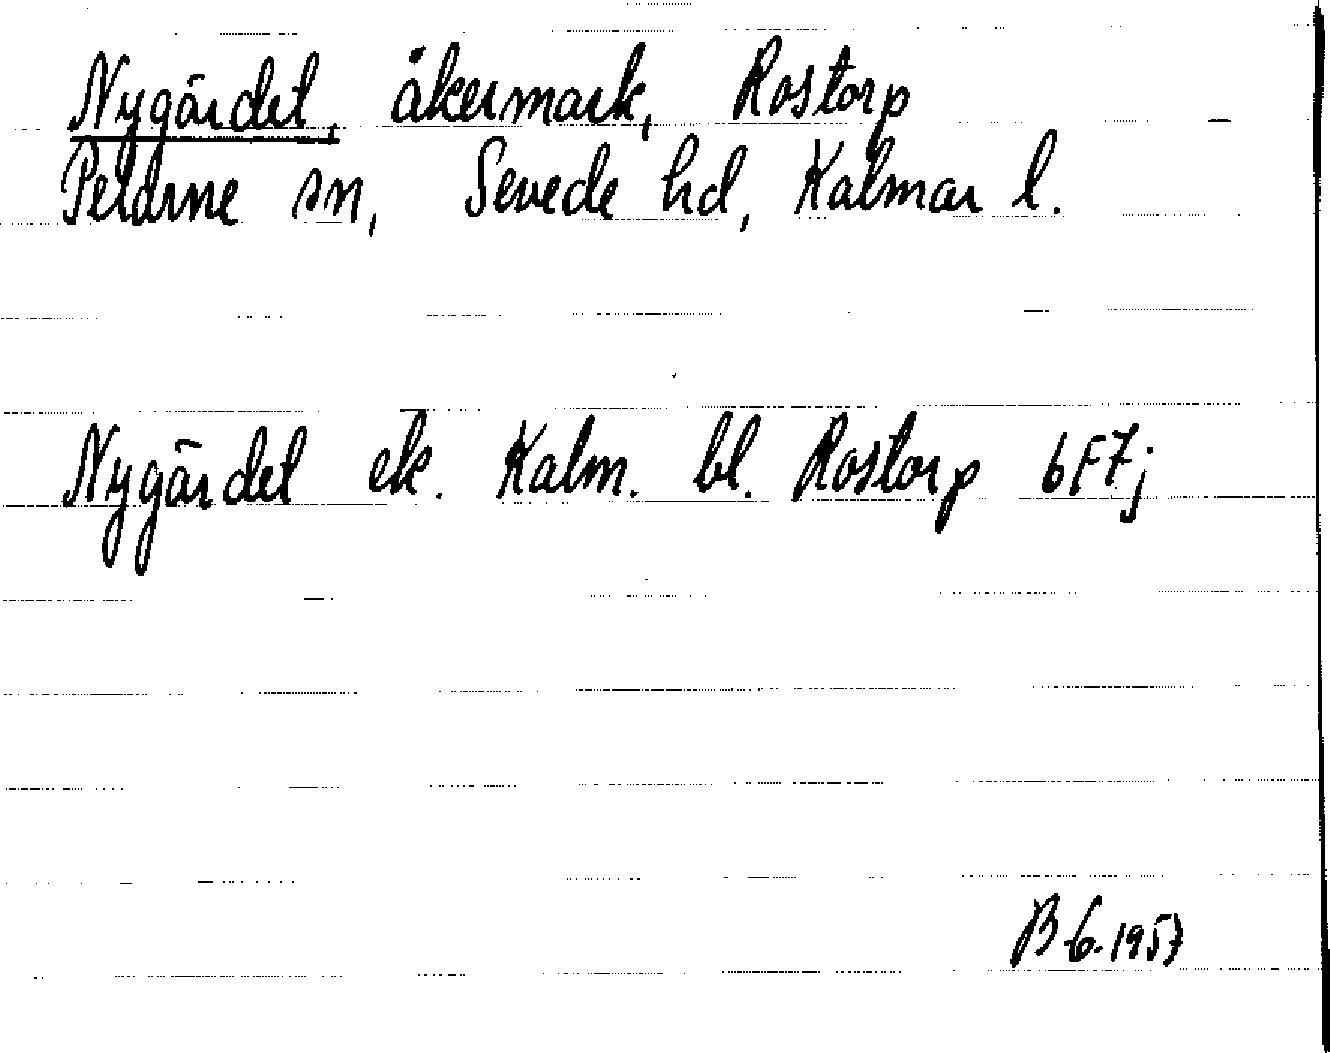 Nygärdet, åkermark, Rostorp
Pelarne sn, Sevede hd, Kalmar l.
Nygärdet ek. Kalm. bl. Rostorp 6F7j
BG.1957